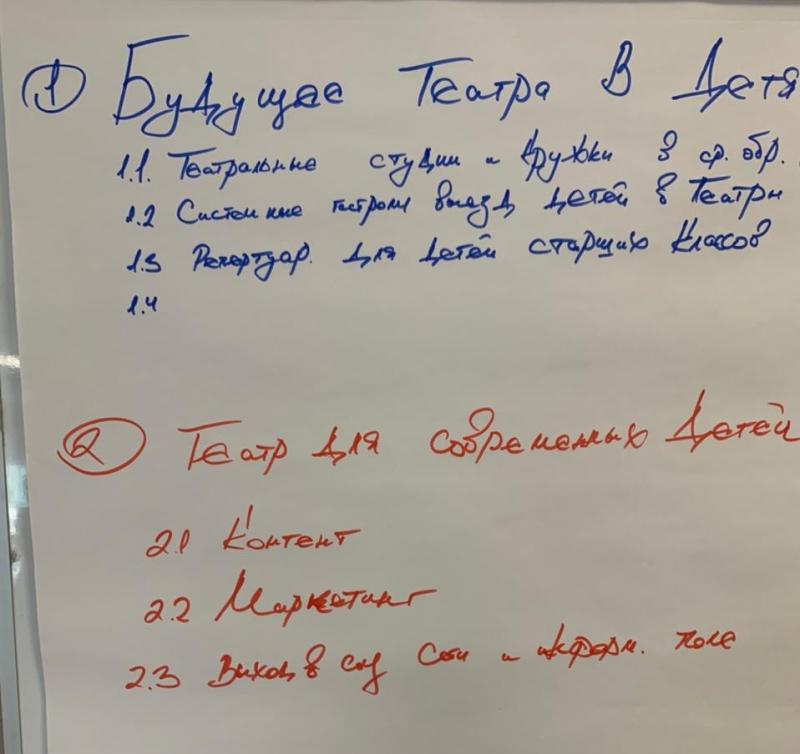 1 Будущее Театра в Детя
1.1. Театральные студии и кружки в ср. обр.
1.2 Системные гастроли выезд детей в Театры
1.3 Репертуар. для детей старших классов
1.4
2 Театр для современных детей
2.1 Контент
2.2 Маркетинг
2.3 Выход в соц сети и информ. поле